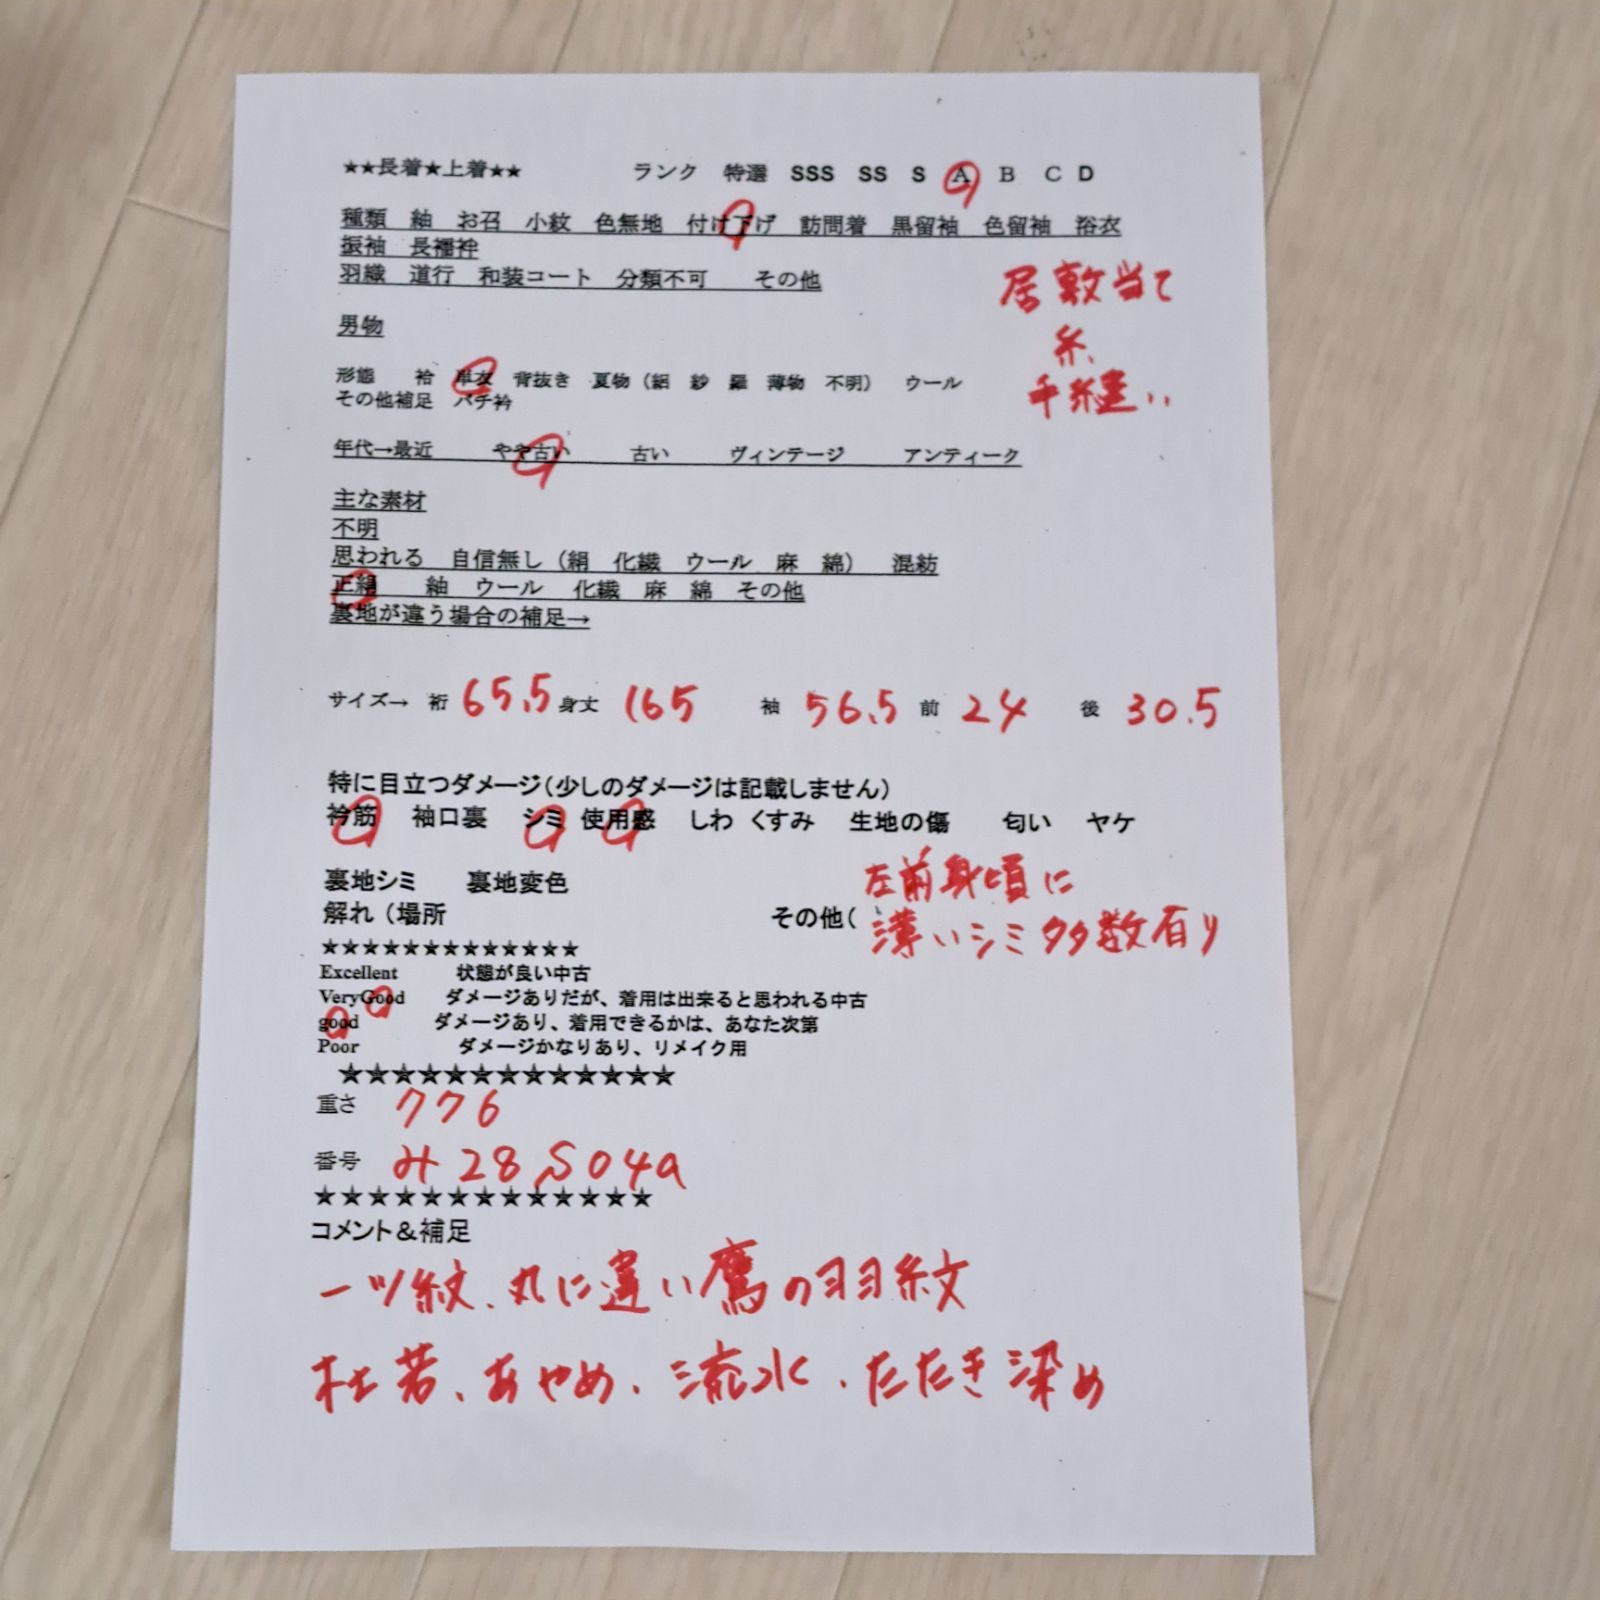 ★★長着★上着★★ ランク 特選 SSS SS S A B C D
種類 紬 お召 小紋 色無地 付け下げ 訪問着 黒留袖 色留袖 浴衣
振袖 長襦袢
羽織 道行 和装コート 分類不可 その他
居敷当て
糸、
手縫い
男物
形態 袷 単衣 背抜き 夏物（絽 紗 羅 薄物 不明） ウール
その他補足 バチ衿
年代→最近 やや古い 古い ヴィンテージ アンティーク
主な素材
不明
思われる 自信無し（絹 化繊 ウール 麻 綿） 混紡
正絹 紬 ウール 化繊 麻 綿 その他
裏地が違う場合の補足→
サイズ→ 裄 65.5 身丈 165 袖 56.5 前 24 後 30.5
特に目立つダメージ（少しのダメージは記載しません）
衿筋 袖口裏 シミ 使用感 しわ くすみ 生地の傷 匂い ヤケ
裏地シミ 裏地変色
左前身頃に
解れ（場所 その他（
薄いシミ多数有り
★★★★★★★★★★★★★
Excellent 状態が良い中古
VeryGood ダメージありだが、着用は出来ると思われる中古
good ダメージあり、着用できるかは、あなた次第
Poor ダメージかなりあり、リメイク用
★★★★★★★★★★★★★
重さ 776
番号 み28S04a
★★★★★★★★★★★★★
コメント＆補足
一ツ紋、丸に違い鷹の羽紋
杜若、あやめ、流水、たたき染め